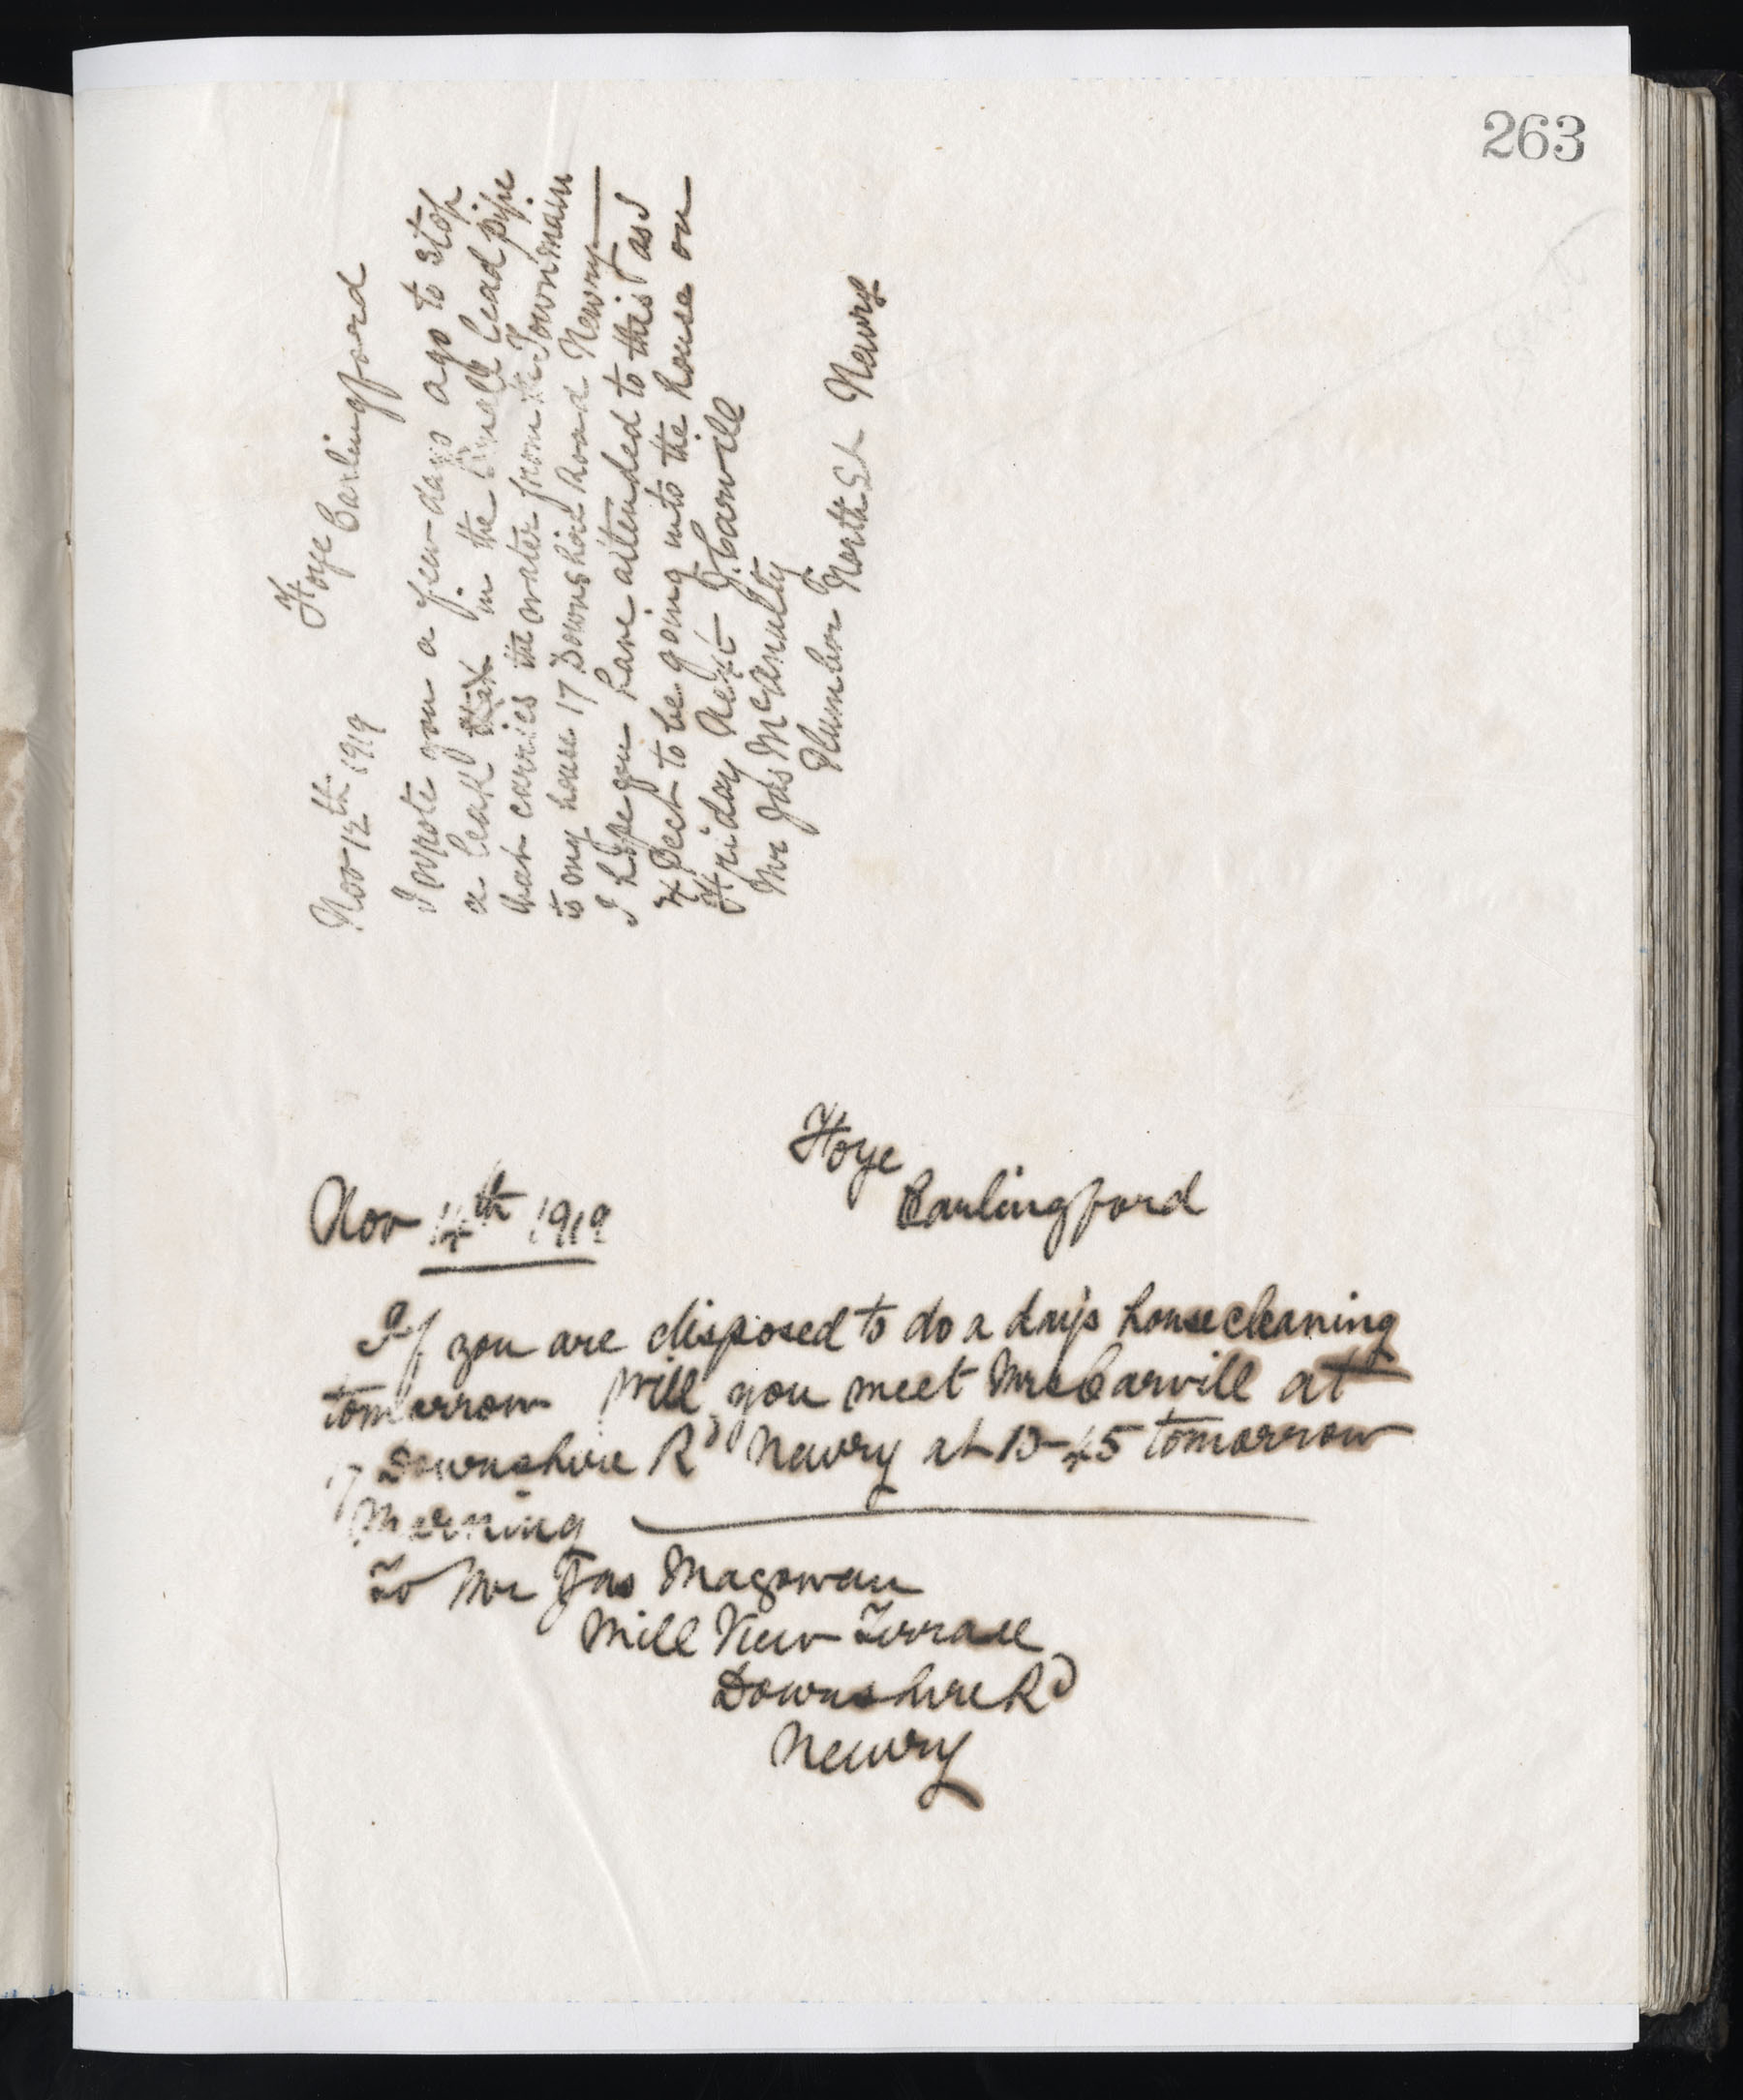 263
Foye
Carlingford
Nov 12th 1919
I wrote you a few days ago to stop
a leak in the small lead pipe
that carries the water from the Town main
to my house 17 Downshire Road Newry
I hope you have attended to this as I
expect to be going into the house on
Friday next J. Carvill
Mr Jas McAnulty
Plumber North St Newry
Foye
Carlingford
Nov 14th 1919
If you are disposed to do a days housecleaning
tomorrow will you meet Mrs Carvill at
17 Downshire Rd Newry at 10-45 tomorrow
morning
To Mr Jas Magowan
Mill View Terrace
Downshire Rd
Newry